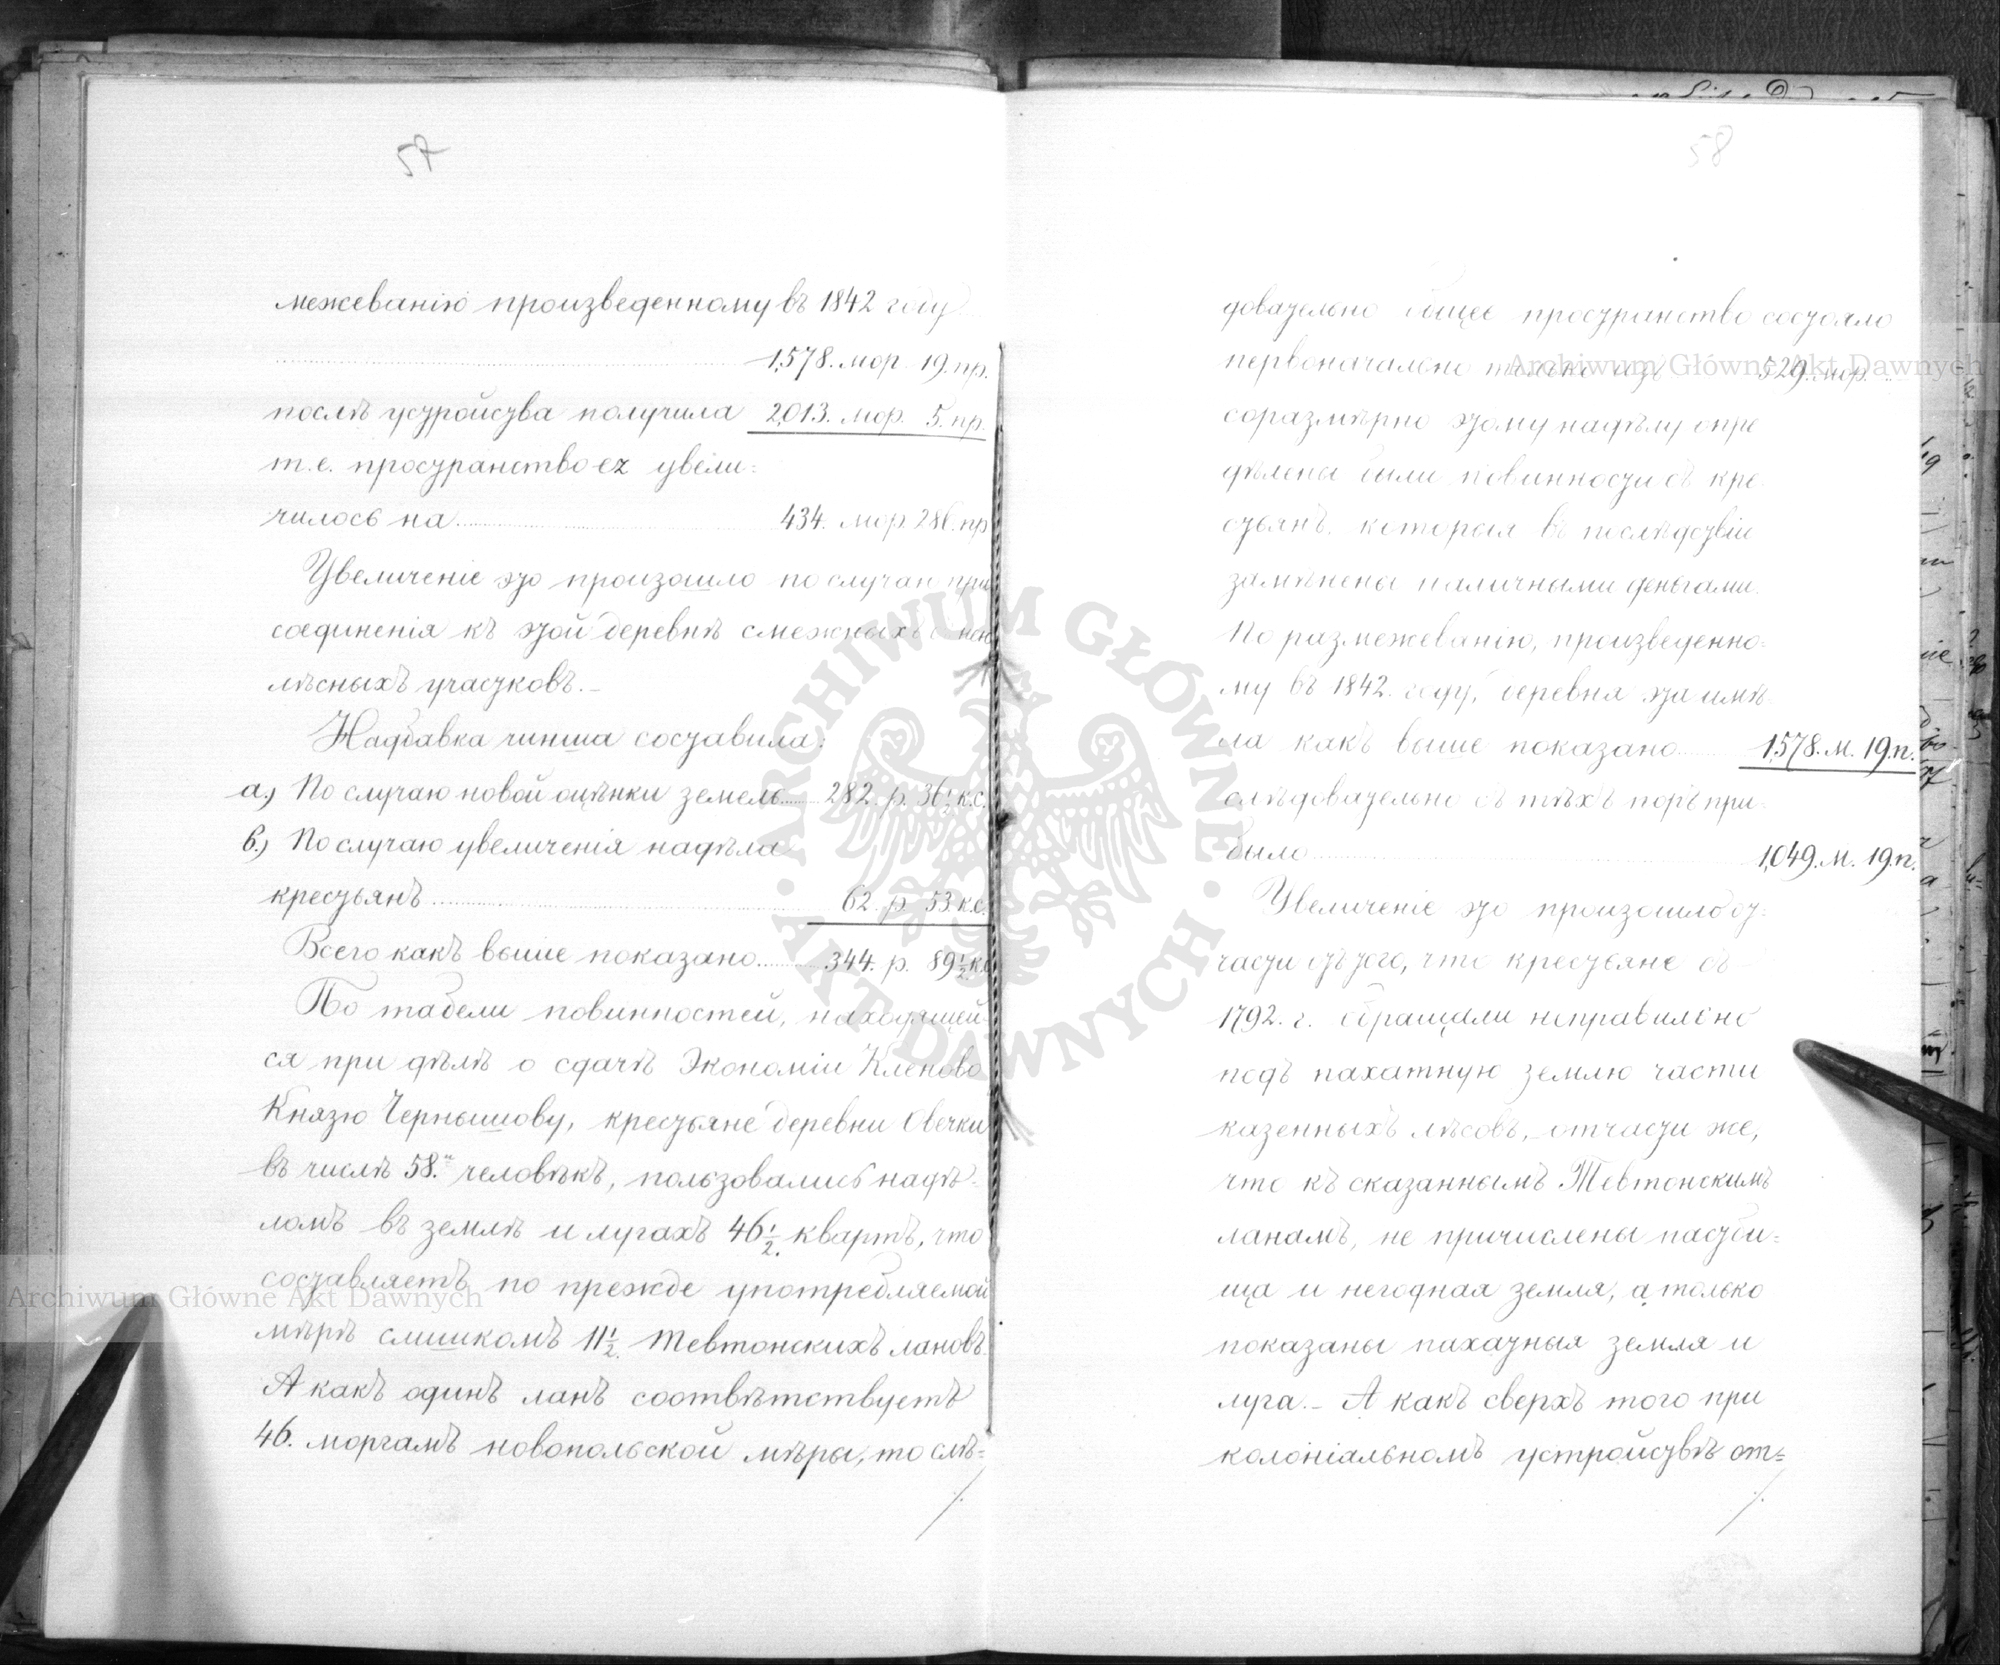 57
межеванію произведенному въ 1842 году
1,578. мор. 19. пр.
послѣ устройства получила 2,013. мор. 5. пр.
т.е. пространство ея увели=
чилось на 434. мор. 286. пр
Увеличеніе это произошло по случаю при
соединенія къ этой деревнѣ смежныхъ
лѣсныхъ участковъ.
Надбавка чинша составила:
а.) По случаю новой оцѣнки земель 282. р. 36½ к.с.
в.) По случаю увеличенія надѣла
крестьянъ 62. р. 53. к.с.
Всего какъ выше показано 344. р. 89½ к.с
По табели повинностей, находящей
ся при дѣлѣ о сдачѣ Экономіи Кленово
Князю Чернышову, крестьяне деревни Овечки
въ числѣ 58.и человѣкъ, пользовались надѣ=
ломъ въ землѣ и лугахъ 46½ квартъ, что
составляетъ по прежде употребляемой
мѣрѣ слишкомъ 11½ Тевтонскихъ лановъ.
А какъ одинъ ланъ соотвѣтствуетъ
46. моргамъ новопольской мѣры, то слѣ=
/.
58
довательно общее пространство состояло
первоначально только изъ 529. мор.
соразмѣрно этому надѣлу опре
дѣлены были повинности съ кре
стьянъ, которыя въ послѣдствіи
замѣнены наличными деньгами.
По размежеванію, произведенно=
му въ 1842. году, деревня эта имѣ
ла какъ выше показано 1,578. м. 19. п.
слѣдовательно съ тѣхъ поръ при=
было 1,049. м. 19. п.
Увеличеніе это произошло от=
части отъ того, что крестьяне съ
1792. г. обращали неправильно
подъ пахатную землю части
казенныхъ лѣсовъ, отчасти же,
что къ сказаннымъ Тевтонскимъ
ланамъ, не причислены пастби=
ща и негодная земля, а только
показаны пахатныя земля и
луга. – А какъ сверхъ того при
колоніальномъ устройствѣ от=
/.
Archiwum Główne Akt Dawnych
Archiwum Główne Akt Dawnych
ARCHIWUM GŁÓWNE AKT DAWNYCH